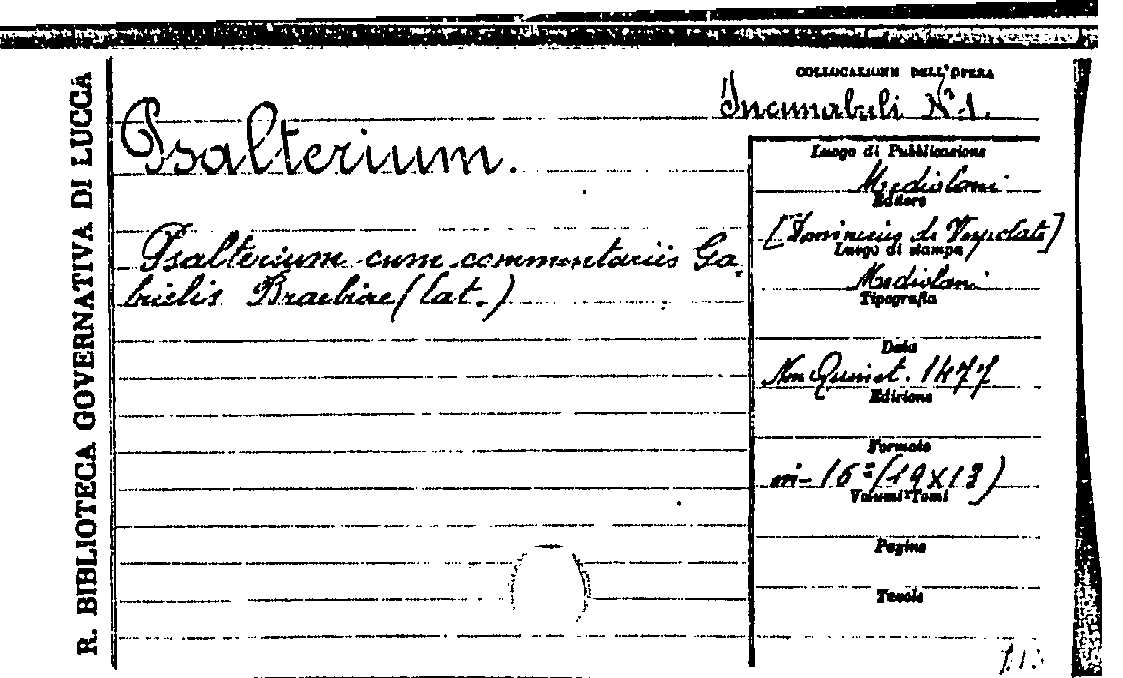 R. BIBLIOTECA GOVERNATIVA DI LUCCA
COLLOCAZIONE DELL'OPERA
Incunabuli N° 1.
Psalterium.
Psalterium cum commentariis Ga-
brielis Braebiae (lat.)
Luogo di Pubblicazione
Mediolani
Editore
[Dominicus de Vespolate]
Luogo di stampa
Mediolani
Tipografia
Data
Non Quint. 1477
Edizione
Formato
in-16° (19x13)
Volumi Tomi
Pagine
Tavole